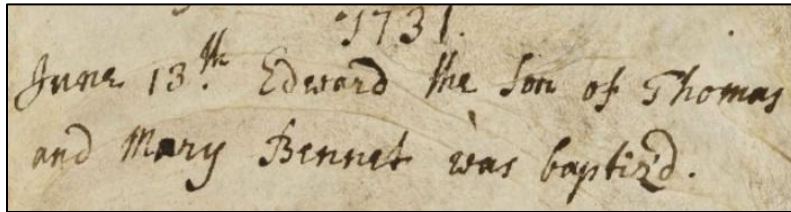 1731.
June 13.th Edward the Son of Thomas
and Mary Bennet was baptiz'd.